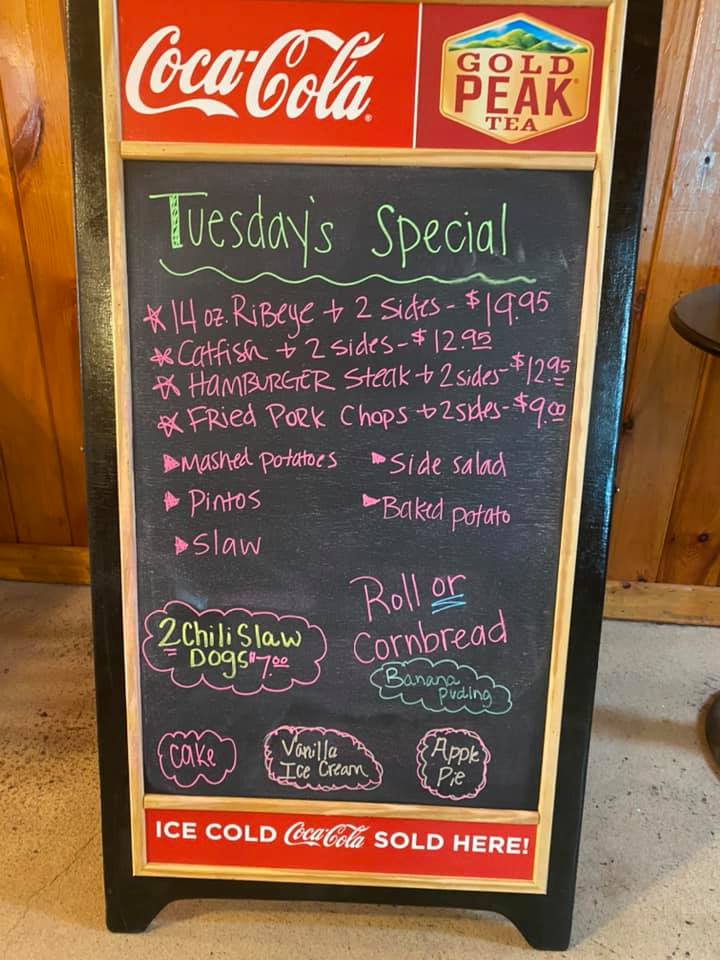 Coca-Cola
GOLD
PEAK
TEA
Tuesday's Special
14 oz. RiBeye + 2 sides - $19.95
Catfish + 2 sides - $12.95
HAMBURGER Steak + 2 sides - $12.95
FRied PORK Chops + 2 sides - $9.00
Mashed potatoes
Side salad
Pintos
Baked potato
Slaw
Roll or
Cornbread
2 Chili Slaw
DOGS $7.00
Banana
puding
cake
Vanilla
Ice Cream
Apple
Pie
ICE COLD Coca-Cola SOLD HERE!